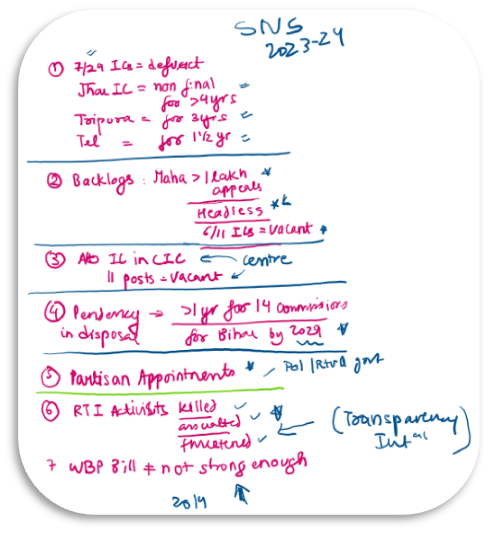 SNS
2023-24
① 7/29 ICs = defunct
Jhar IC = non final
for >4yrs
Tripura = for 3yrs
Tel = for 1 1/2 yr
② Backlogs : Maha > 1 lakh
appeals
Headless
6/11 ICs = vacant
③ IC in CIC ← centre
11 posts = vacant
④ Pendency → >1 yr for 14 commissions
in disposal for Bihar by 2029
⑤ Partisan Appointments / Pol / Rtrd govt
⑥ RTI Activists killed
assaulted
threatened ← (Transparency
Int al)
7 WBP Bill ≠ not strong enough
2014